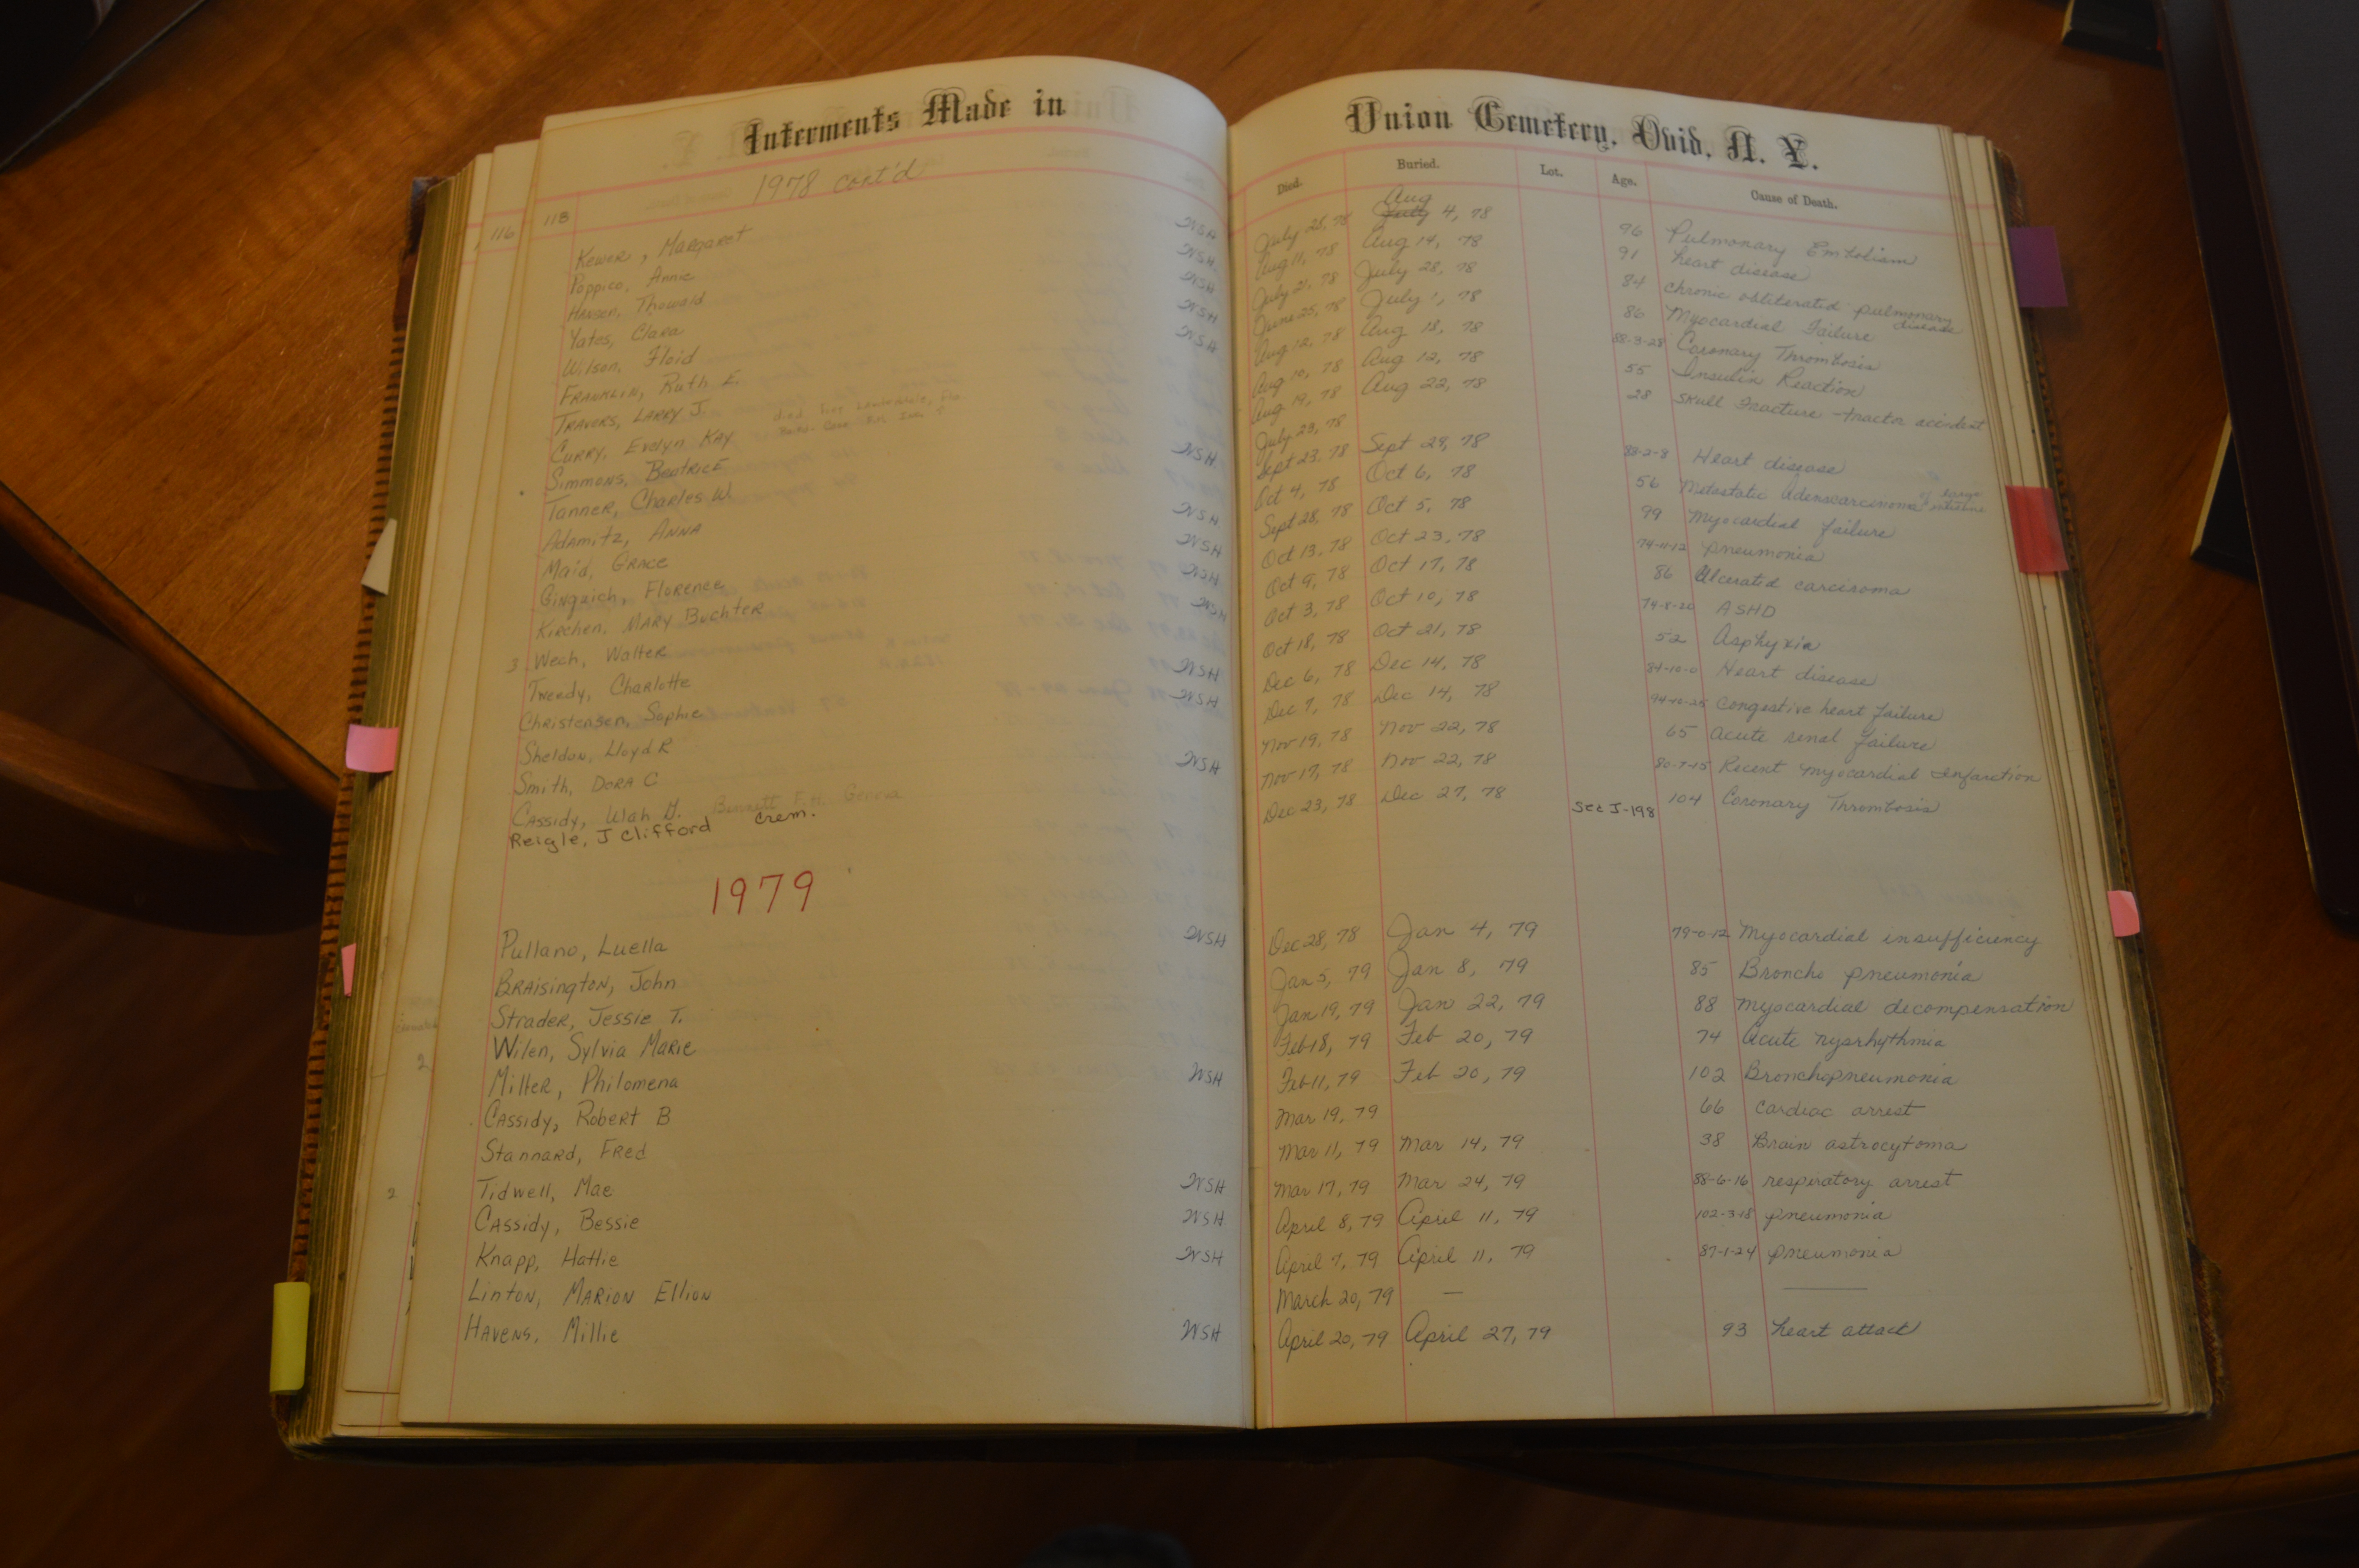 Interments Made in
1978 cont'd
116
118
Kewer, Margaret WSH
Poppico, Annie WSH
Hansen, Thowald WSH
Yates, Clara WSH
Wilson, Floid WSH
Franklin, Ruth E.
Travers, Larry J.
Curry, Evelyn Kay died Fort Lauderdale, Fla.
Simmons, Beatrice WSH
Tanner, Charles W.
Adamitz, Anna WSH
Maid, Grace WSH
Gingrich, Florence WSH
Kirchen, Mary Buchter WSH
3 Wech, Walter
Tweedy, Charlotte WSH
Christensen, Sophie WSH
Sheldon, Lloyd R
Smith, Dora C WSH
Cassidy, Ulah G. Bennett F.H. Geneva
Reigle, J Clifford Crem.
1979
Pullano, Luella WSH
Braisington, John
Strader, Jessie T.
Wilen, Sylvia Marie
2
Miller, Philomena WSH
Cassidy, Robert B
Stannard, Fred
2
Tidwell, Mae WSH
Cassidy, Bessie WSH
Knapp, Hattie WSH
Linton, Marion Ellion
Havens, Millie WSH
Union Cemetery, Ovid, N. Y.
Died. Buried. Lot. Age. Cause of Death.
July 25, 78 July Aug 4, 78 96 Pulmonary Embolism
Aug 11, 78 Aug 14, 78 91 heart disease
July 21, 78 July 28, 78 84 chronic obliterated pulmonary disease
June 25, 78 July 1, 78 86 Myocardial Failure
Aug 12, 78 Aug 18, 78 88-3-28 Coronary Thrombosis
Aug 10, 78 Aug 12, 78 55 Insulin Reaction
Aug 19, 78 Aug 22, 78 28 Skull Fracture - tractor accident
July 29, 78
Sept 23, 78 Sept 29, 78 88-2-8 Heart disease
Oct 4, 78 Oct 6, 78 56 Metastatic adenocarcinoma of large intestine
Sept 28, 78 Oct 5, 78 99 Myocardial failure
Oct 13, 78 Oct 23, 78 74-11-12 pneumonia
Oct 9, 78 Oct 17, 78 86 Ulcerated carcinoma
Oct 3, 78 Oct 10, 78 79-8-20 ASHD
Oct 18, 78 Oct 21, 78 52 Asphyxia
Dec 6, 78 Dec 14, 78 84-10-0 Heart disease
Dec 7, 78 Dec 14, 78 94-10-25 Congestive heart failure
Nov 19, 78 Nov 22, 78 65 Acute renal failure
Nov 17, 78 Nov 22, 78 80-7-15 Recent Myocardial Infarction
Dec 23, 78 Dec 27, 78 104 Coronary Thrombosis
Sec J-198
Dec 28, 78 Jan 4, 79 79-0-12 Myocardial insufficiency
Jan 5, 79 Jan 8, 79 85 Broncho pneumonia
Jan 19, 79 Jan 22, 79 88 Myocardial decompensation
Feb 18, 79 Feb 20, 79 74 Acute nysrhythmia
Feb 11, 79 Feb 20, 79 102 Bronchopneumonia
Mar 19, 79 66 cardiac arrest
Mar 11, 79 Mar 14, 79 38 Brain astrocytoma
Mar 17, 79 Mar 24, 79 88-6-16 respiratory arrest
April 8, 79 April 11, 79 102-3-18 pneumonia
April 7, 79 April 11, 79 87-1-24 pneumonia
March 20, 79 —
April 20, 79 April 27, 79 93 heart attack